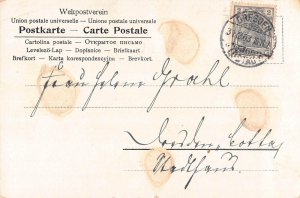 Weltpostverein
Union postale universelle — Unione postale universale
Postkarte — Carte Postale
Cartolina postale — Открытое письмо
Levelező-Lap — Dopisnice — Briefkaart
Brefkort — Karta korespondencyjna — Brevkort.
Fräulein Grahl
Dresden, Cotta,
Stadthaus.